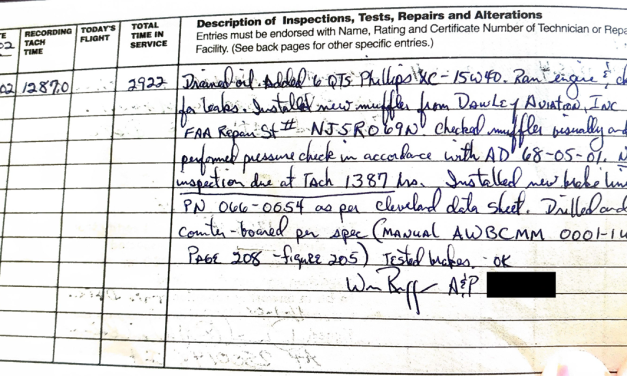 E
RECORDING TACH TIME
TODAY'S FLIGHT
TOTAL TIME IN SERVICE
Description of Inspections, Tests, Repairs and Alterations
Entries must be endorsed with Name, Rating and Certificate Number of Technician or Repa
Facility. (See back pages for other specific entries.)
02
02 1287.0 2922 Drained oil. Added 6 QTS Phillips XC-15W40. Ran engine & c
for leaks. Installed new muffler from Dawley Aviation, Inc
FAA Repair St # NJ5R069N checked muffler visually and
performed pressure check in accordance with AD 68-05-01. N
inspection due at Tach 1387 hrs. Installed new brake lin
PN 066-0654 as per cleveland data sheet. Drilled and
counter-boared per spec (MANUAL AWBCMM 0001-14
PAGE 208 - figure 205) Tested brakes - OK
A&P